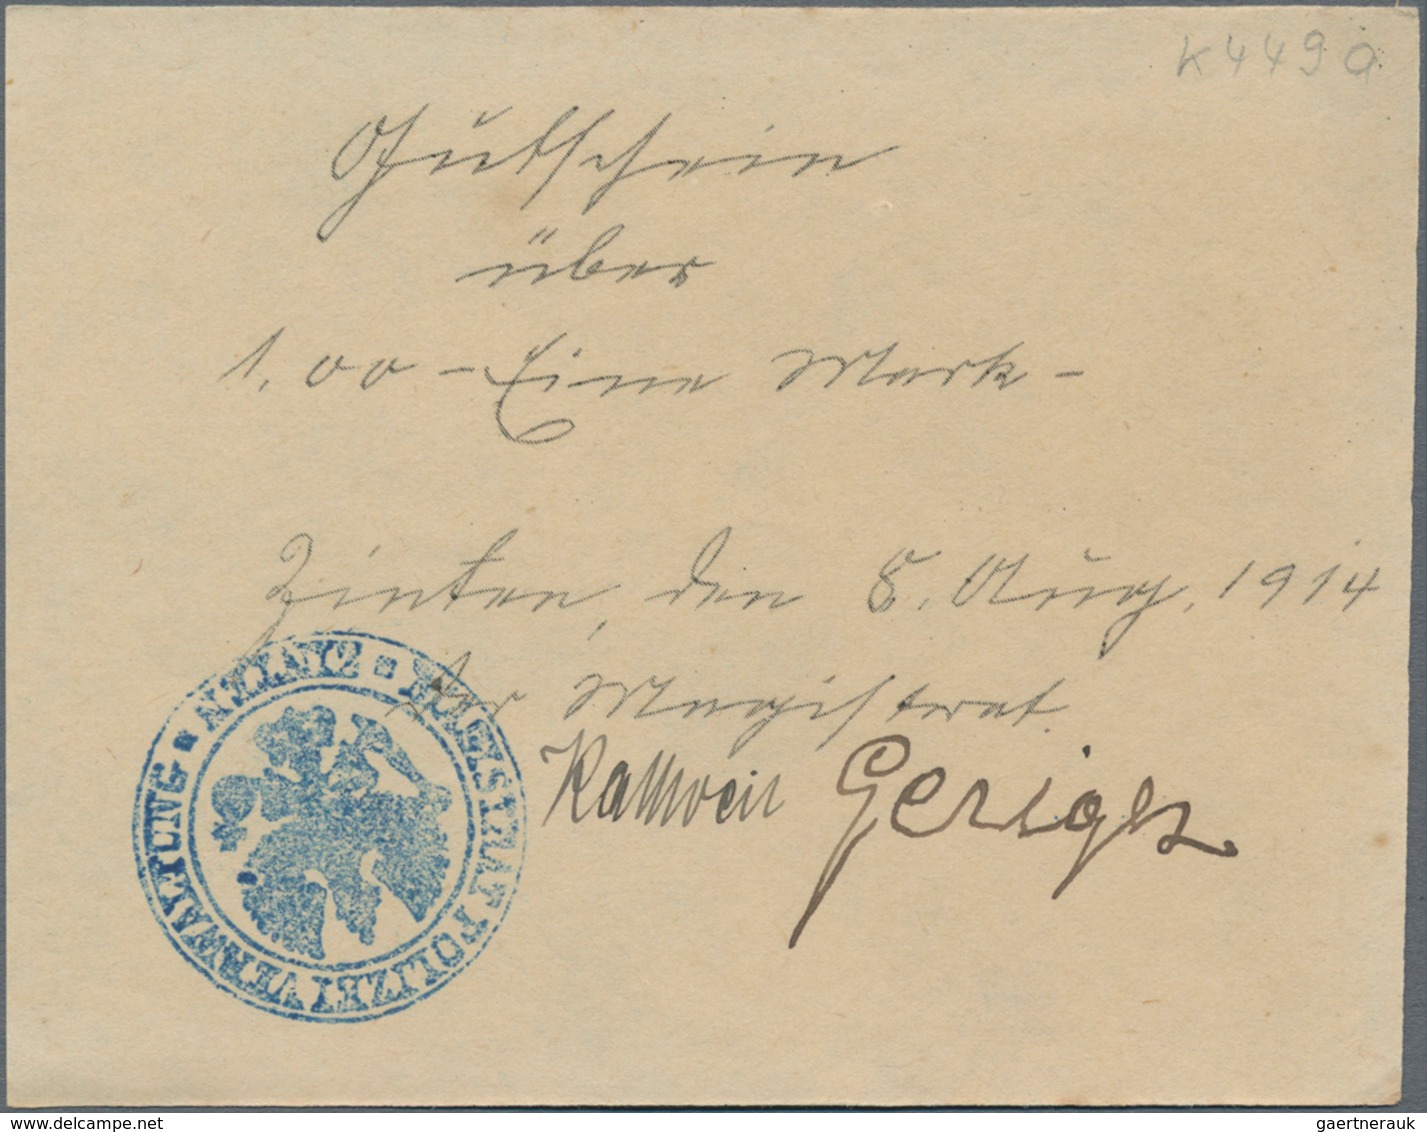 K 449 a
Gutschein
über
1,00 - Eine Mark -
Zinten, den 8. Aug. 1914
Der Magistrat
Gerigk
MAGISTRAT POLIZEI VERWALTUNG · ZINTEN ·
delcampe.net
gaertnerauk